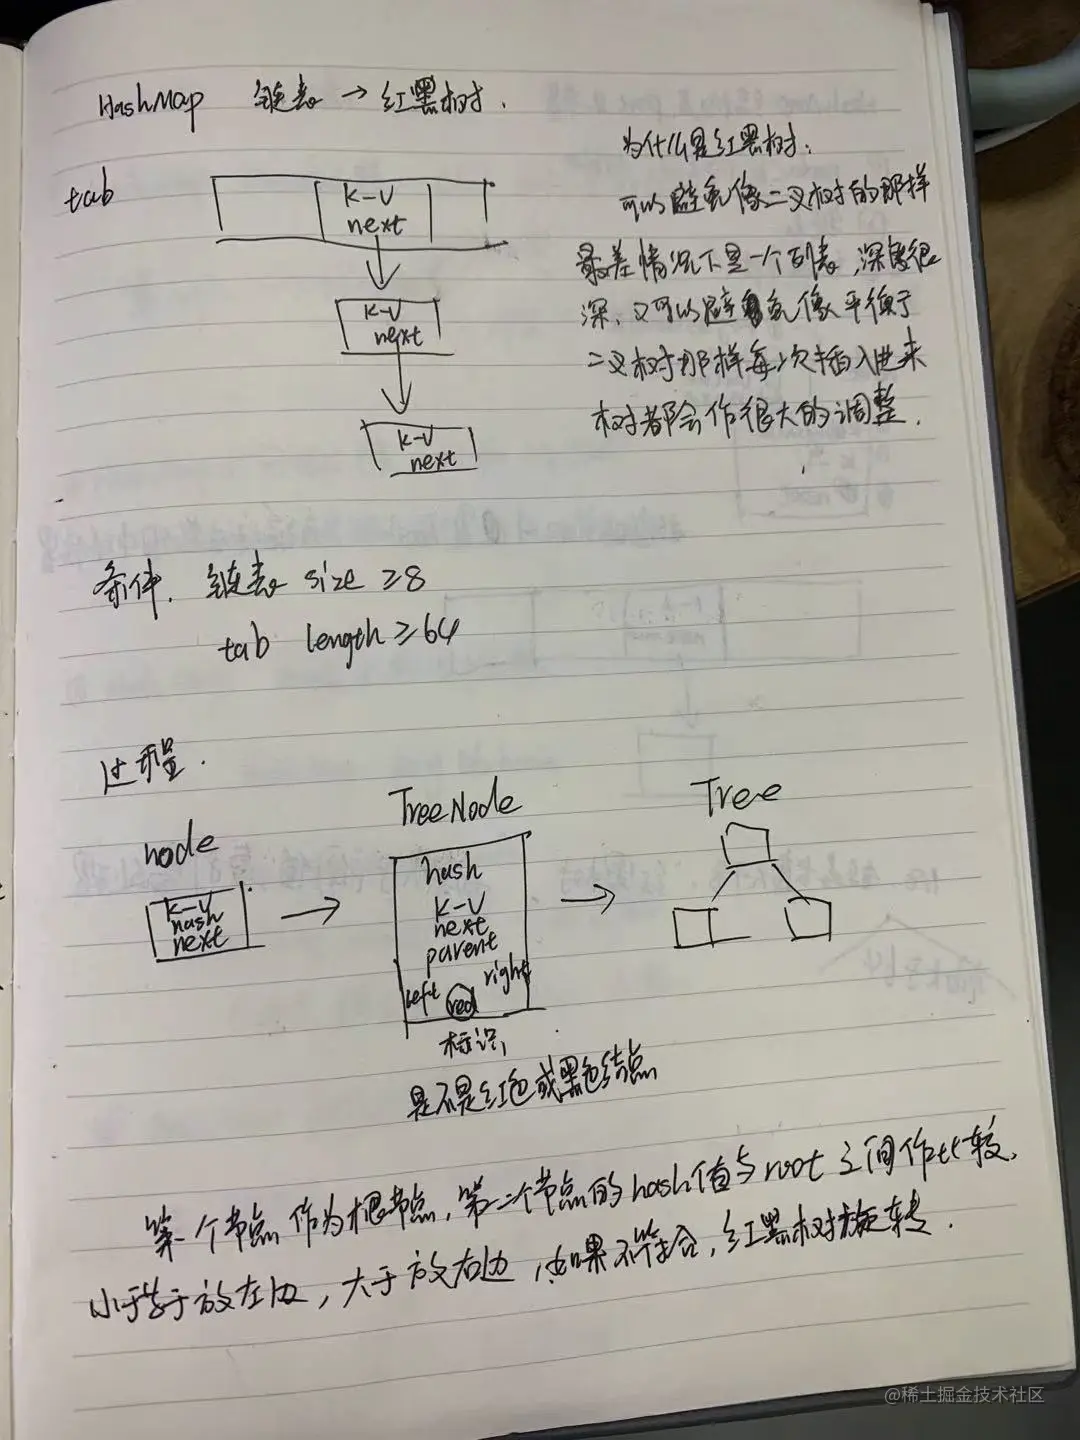 HashMap 链表 → 红黑树.
tab
K-V
next
K-V
next
K-V
next
为什么是红黑树.
可以避免像二叉树的那样
最差情况下是一个列表,深度很
深,又可以避免像平衡
二叉树那样每次插入进来
树都会作很大的调整.
条件. 链表 size ≥8
tab length ≥64
过程.
node
K-V
hash
next
TreeNode
hash
K-V
next
parent
left right
red
标识,
是不是红色或黑色结点
Tree
第一个节点作为根节点,第二个节点的hash值与root之间作比较,
小于等于放左边,大于放右边,如果不符合,红黑树旋转.
@稀土掘金技术社区